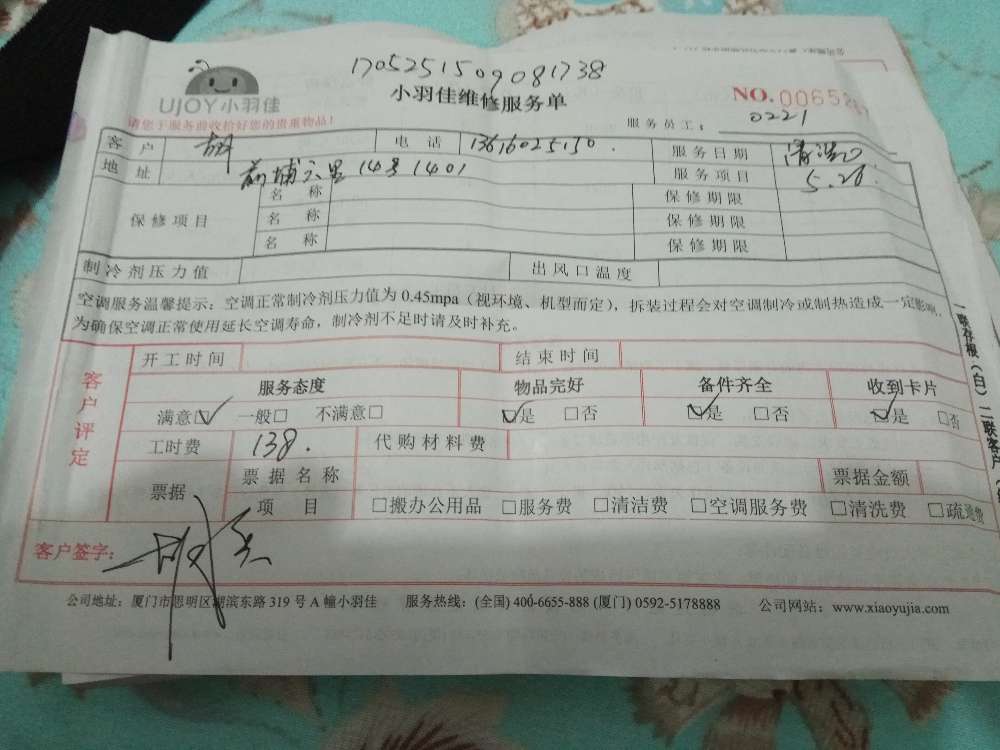 1705251509081738
UJOY小羽佳
小羽佳维修服务单
NO.0065
请您于服务前收拾好您的贵重物品!
服务员工: 0221
客户 胡 电话 13616025150 服务日期
地址 前埔六里14号1401 服务项目 5.26.
保修项目 名称 保修期限
名称 保修期限
名称 保修期限
制冷剂压力值 出风口温度
空调服务温馨提示:空调正常制冷剂压力值为0.45mpa(视环境、机型而定),拆装过程会对空调制冷或制热造成一定影响,
为确保空调正常使用延长空调寿命,制冷剂不足时请及时补充。
开工时间 结束时间
客户评定
服务态度 物品完好 备件齐全 收到卡片
满意☑ 一般□ 不满意□ ☑是 □否 ☑是 □否 ☑是 □否
工时费 138. 代购材料费
票据 票据名称 票据金额
项目 □搬办公用品 □服务费 □清洁费 □空调服务费 □清洗费 □疏通费
客户签字:
公司地址:厦门市思明区湖滨东路319号A幢小羽佳 服务热线:(全国)400-6655-888 (厦门)0592-5178888 公司网站:www.xiaoyujia.com
一联存根(白)二联客户